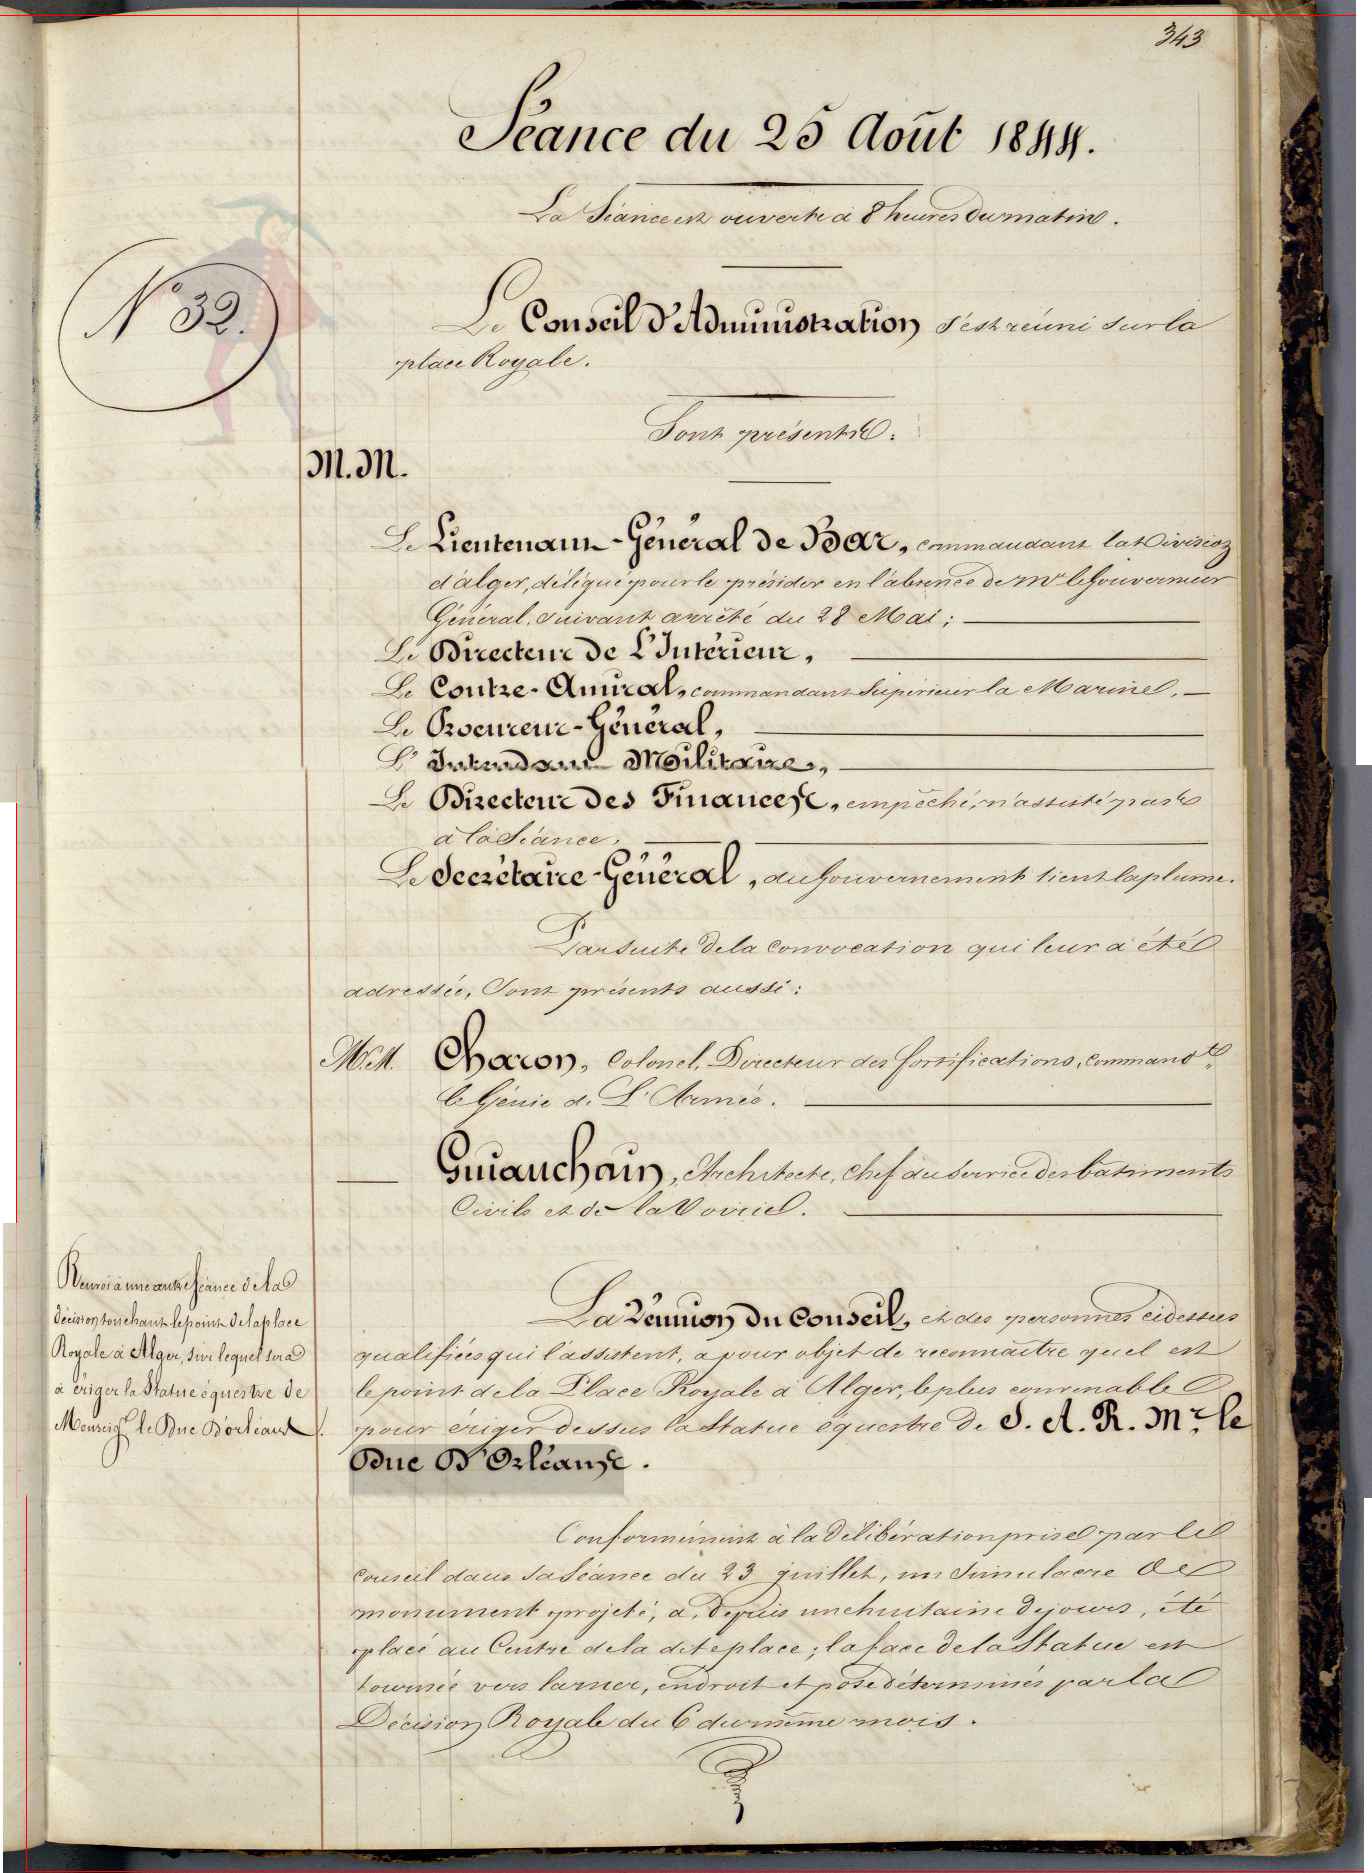 343
Séance du 25 Août 1844.
La Séance est ouverte à 8 heures du matin.
N° 32.
Le Conseil d'Administration s'est réuni sur la
place Royale.
Sont présents :
M.M.
Le Lieutenant-Général de Bar, commandant la Division
d'alger, délégué pour le présider en l'absence de Mr le Gouverneur
Général, suivant arrêté du 28 Mai ;
Le Directeur de L'Intérieur,
Le Contre-Amiral, commandant Supérieur la Marine,
Le Procureur-Général,
L' Intendant Militaire,
Le Directeur des Finances, empêché, n'assiste pas
à la Séance,
Le Secrétaire-Général, du Gouvernement tient la plume.
Par suite de la convocation qui leur a été
adressée, Sont présents aussi :
M.M. Charon, Colonel, Directeur des fortifications, commandt
le Génie de L'Armée.
Guiauchain, Architecte, Chef du Service des bâtiments
Civils et de la Voirie.
Renvoi à une autre Séance de la
décision touchant le point de la place
Royale à Alger, sur lequel sera
à ériger la Statue équestre de
Monseigr le Duc D'orléans.
La réunion du Conseil, et des personnes ci dessus
qualifiées qui l'assistent, a pour objet de reconnaître quel est
le point de la Place Royale d'Alger, le plus convenable
pour ériger dessus la Statue équestre de S. A. R. Mr. le
Duc D'Orléans.
Conformément à la délibération prise par le
conseil dans sa Séance du 23 juillet, un simulacre de
monument projeté, a, depuis une huitaine de jours, été
placé au Centre de la dite place ; la face de la Statue est
tournée vers la mer, endroit et pose déterminés par la
Décision Royale du 6 du même mois.